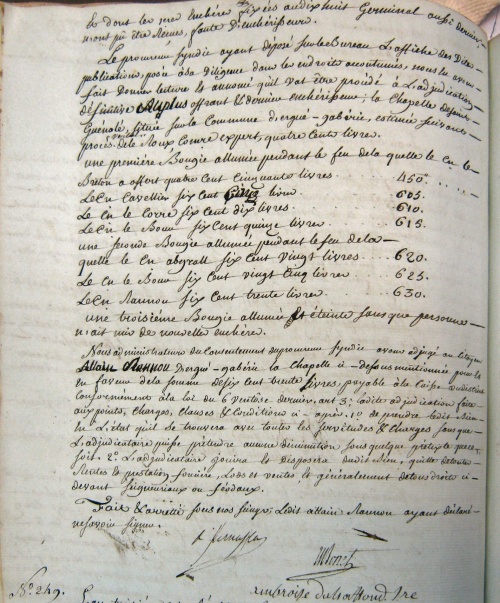 et dont les mes enchère fixées au dix huit Germinal aussi dernier,
n'ont pu être tenues, faute D'enchérisseurs.
Le procureur syndic ayant déposé sur le Bureau L'affiche des Dites
publications, posée à sa diligence dans les endroits accoutumés, nous en avons
fait Donner lecture & annoncé qu'il vat être procédé à L'adjudication
définitive Au plus offrant & dernier enchérisseur; la Chapelle de
Guenolé, située sur la Commune d'ergué-gabérie, estimée suivant
procès de le Roux Comre expert, quatre Cents livres.
une première Bougie allumée pendant le feu de la quelle le Cn le
Breton a offert quatre cent Cinquante livres. 450.
Le Cn Cavellier six Cent Cinq livres 605.
Le Cn le Corre six Cent dix livres. 610.
Le Cn le Bour six Cent quinze livres 615.
une seconde Bougie allumée pendant le feu de la
quelle le Cn abgrall six Cent vingt livres 620.
Le Cn le Bour six Cent vingt Cinq livres 625.
Le Cn Rannou six Cent trente livres 630.
une troisième Bougie allumée Et éteinte sans que personne
n'ait mis de nouvelle enchère.
Nous administrateurs du Consentement du procureur syndic avons adjugé au Citoyen
Allain Rannou d'ergué-gabérie la Chapelle ci-dessus mentionnée pour &
en faveur de la somme de six Cent trente livres, payable à la Caisse du district
Conformément à la loi du 6 ventôse dernier, art 3. ladite adjudication faite
aux points, Charges, Clauses & Conditions ci-après. 1o. de prendre ledit Bien
en L'état qu'il se trouvera avec toutes les servitudes & Charges sans que
L'adjudicataire puisse prétendre aucune diminution, sous quelque prétexte que ce
soit. 2o. L'adjudicataire jouira & disposera dudit Bien, quitte de toutes
Rentes & prestations foncières, Lods et ventes et généralement de tous droits ci-
devant seigneuriaux ou féodaux.
Fait & arrêté sous nos seings Ledit allain Rannou ayant déclaré
ne savoir signer.
No. 249.